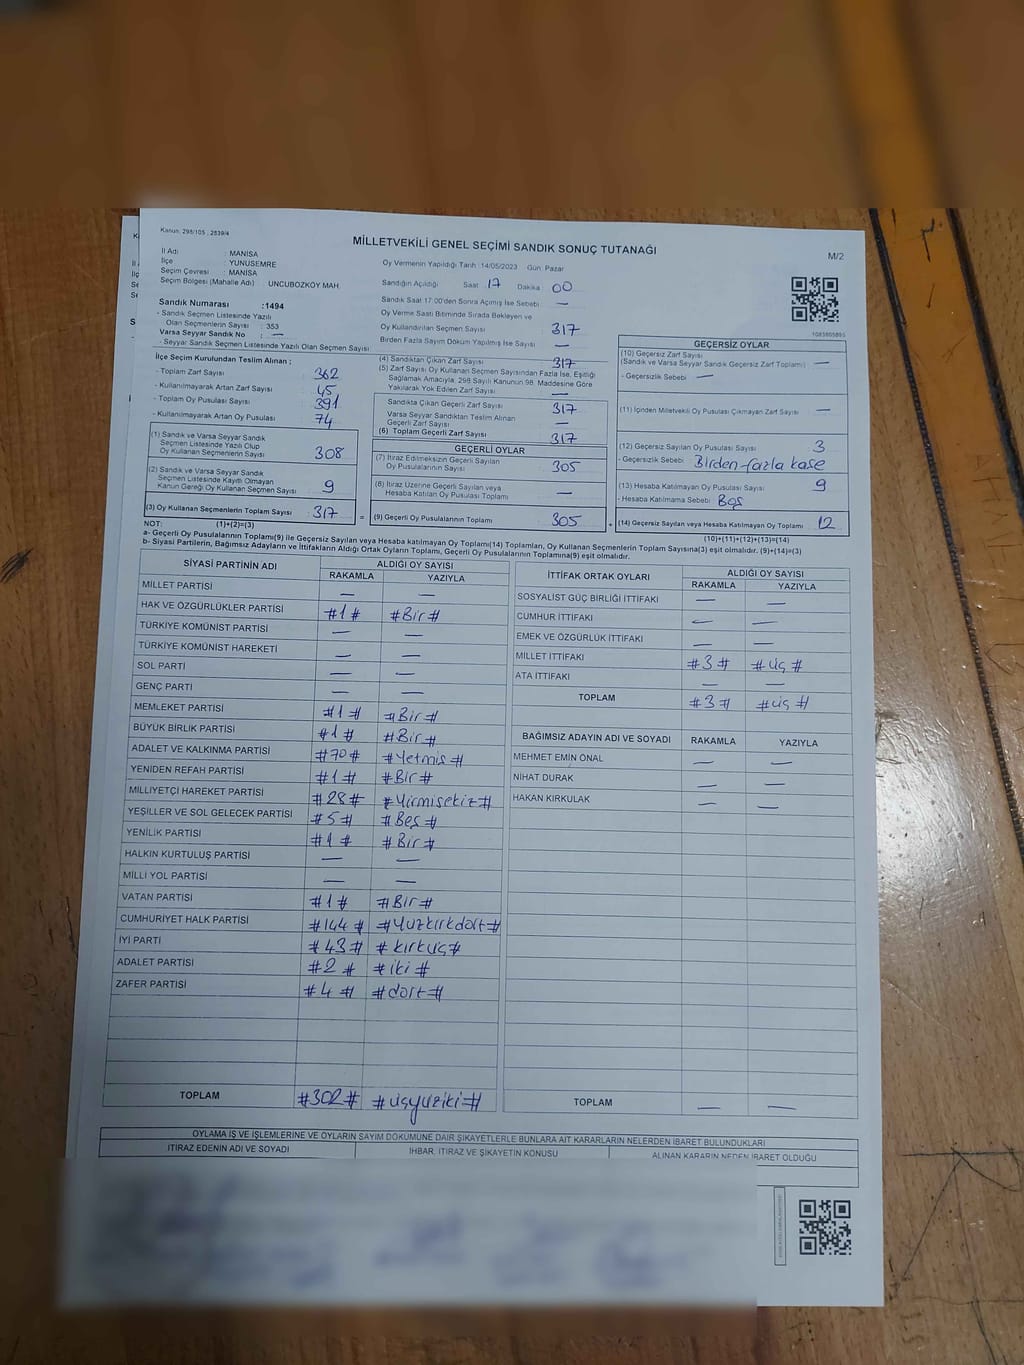 Kanun: 298/105 , 2839/4
MİLLETVEKİLİ GENEL SEÇİMİ SANDIK SONUÇ TUTANAĞI
M/2
İl Adı : MANİSA
İlçe : YUNUSEMRE
Seçim Çevresi : MANİSA
Seçim Bölgesi (Mahalle Adı) : UNCUBOZKÖY MAH.
Sandık Numarası :1494
- Sandık Seçmen Listesinde Yazılı
Olan Seçmenlerin Sayısı : 353
Varsa Seyyar Sandık No : —
- Seyyar Sandık Seçmen Listesinde Yazılı Olan Seçmen Sayısı:
İlçe Seçim Kurulundan Teslim Alınan ;
- Toplam Zarf Sayısı 362
- Kullanılmayarak Artan Zarf Sayısı 45
- Toplam Oy Pusulası Sayısı 391
- Kullanılmayarak Artan Oy Pusulası 74
(1) Sandık ve Varsa Seyyar Sandık
Seçmen Listesinde Yazılı Olup
Oy Kullanan Seçmenlerin Sayısı 308
(2) Sandık ve Varsa Seyyar Sandık
Seçmen Listesinde Kayıtlı Olmayan
Kanun Gereği Oy Kullanan Seçmen Sayısı 9
(3) Oy Kullanan Seçmenlerin Toplam Sayısı 317
Oy Vermenin Yapıldığı Tarih :14/05/2023 Gün: Pazar
Sandığın Açıldığı Saat 17 Dakika 00
Sandık Saat 17:00'den Sonra Açılmış İse Sebebi —
Oy Verme Saati Bitiminde Sırada Bekleyen ve
Oy Kullandırılan Seçmen Sayısı 317
Birden Fazla Sayım Döküm Yapılmış İse Sayısı —
(4) Sandıktan Çıkan Zarf Sayısı 317
(5) Zarf Sayısı Oy Kullanan Seçmen Sayısından Fazla İse, Eşitliği
Sağlamak Amacıyla, 298 Sayılı Kanunun 98. Maddesine Göre
Yakılarak Yok Edilen Zarf Sayısı —
Sandıkta Çıkan Geçerli Zarf Sayısı 317
Varsa Seyyar Sandıktan Teslim Alınan
Geçerli Zarf Sayısı —
(6) Toplam Geçerli Zarf Sayısı 317
GEÇERLİ OYLAR
(7) İtiraz Edilmeksizin Geçerli Sayılan
Oy Pusulalarının Sayısı 305
(8) İtiraz Üzerine Geçerli Sayılan veya
Hesaba Katılan Oy Pusulası Toplamı —
= (9) Geçerli Oy Pusulalarının Toplamı 305 +
1083805895
GEÇERSİZ OYLAR
(10) Geçersiz Zarf Sayısı
(Sandık ve Varsa Seyyar Sandık Geçersiz Zarf Toplamı) —
- Geçersizlik Sebebi —
(11) İçinden Milletvekili Oy Pusulası Çıkmayan Zarf Sayısı —
(12) Geçersiz Sayılan Oy Pusulası Sayısı 3
- Geçersizlik Sebebi Birden fazla kaşe
(13) Hesaba Katılmayan Oy Pusulası Sayısı 9
- Hesaba Katılmama Sebebi Boş
(14) Geçersiz Sayılan veya Hesaba Katılmayan Oy Toplamı 12
NOT: (1)+(2)=(3) (10)+(11)+(12)+(13)=(14)
a- Geçerli Oy Pusulalarının Toplamı(9) ile Geçersiz Sayılan veya Hesaba katılmayan Oy Toplamı(14) Toplamları, Oy Kullanan Seçmenlerin Toplam Sayısına(3) eşit olmalıdır. (9)+(14)=(3)
b- Siyasi Partilerin, Bağımsız Adayların ve İttifakların Aldığı Ortak Oyların Toplamı, Geçerli Oy Pusulalarının Toplamına(9) eşit olmalıdır.
SİYASİ PARTİNİN ADI ALDIĞI OY SAYISI
RAKAMLA YAZIYLA
MİLLET PARTİSİ — —
HAK VE ÖZGÜRLÜKLER PARTİSİ #1# #Bir#
TÜRKİYE KOMÜNİST PARTİSİ — —
TÜRKİYE KOMÜNİST HAREKETİ — —
SOL PARTİ — —
GENÇ PARTİ — —
MEMLEKET PARTİSİ #1# #Bir#
BÜYÜK BİRLİK PARTİSİ #1# #Bir#
ADALET VE KALKINMA PARTİSİ #70# #Yetmiş#
YENİDEN REFAH PARTİSİ #1# #Bir#
MİLLİYETÇİ HAREKET PARTİSİ #28# #Yirmisekiz#
YEŞİLLER VE SOL GELECEK PARTİSİ #5# #Beş#
YENİLİK PARTİSİ #1# #Bir#
HALKIN KURTULUŞ PARTİSİ — —
MİLLİ YOL PARTİSİ — —
VATAN PARTİSİ #1# #Bir#
CUMHURİYET HALK PARTİSİ #144# #Yüzkırkdört#
İYİ PARTİ #43# #kırküç#
ADALET PARTİSİ #2# #iki#
ZAFER PARTİSİ #4# #dört#
TOPLAM #302# #üçyüziki#
İTTİFAK ORTAK OYLARI ALDIĞI OY SAYISI
RAKAMLA YAZIYLA
SOSYALİST GÜÇ BİRLİĞİ İTTİFAKI — —
CUMHUR İTTİFAKI — —
EMEK VE ÖZGÜRLÜK İTTİFAKI — —
MİLLET İTTİFAKI #3# #üç#
ATA İTTİFAKI — —
TOPLAM #3# #üç#
BAĞIMSIZ ADAYIN ADI VE SOYADI RAKAMLA YAZIYLA
MEHMET EMİN ÖNAL — —
NİHAT DURAK — —
HAKAN KIRKULAK — —
TOPLAM — —
OYLAMA İŞ VE İŞLEMLERİNE VE OYLARIN SAYIM DÖKÜMÜNE DAİR ŞİKAYETLERLE BUNLARA AİT KARARLARIN NELERDEN İBARET BULUNDUKLARI
İTİRAZ EDENİN ADI VE SOYADI İHBAR, İTİRAZ VE ŞİKAYETİN KONUSU ALINAN KARARIN NEDEN İBARET OLDUĞU